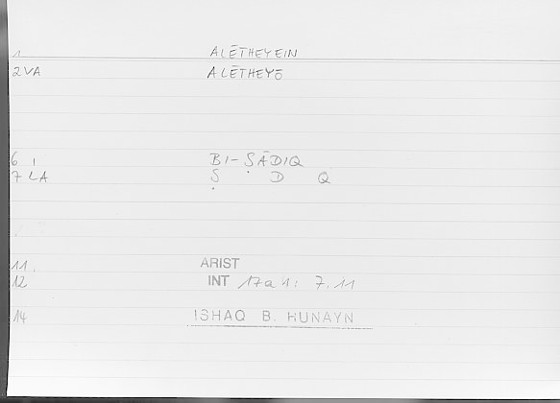 1 ALĒTHEYEIN
2VA ALĒTHEYŌ
6 1 BI-ṢĀDIQ
7 LA Ṣ D Q
11. ARIST
12 INT 17a 1; 7.11
14 ISHAQ B. HUNAYN